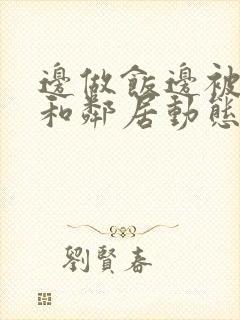 邊做飯邊被
和鄰居動態
劉賢春